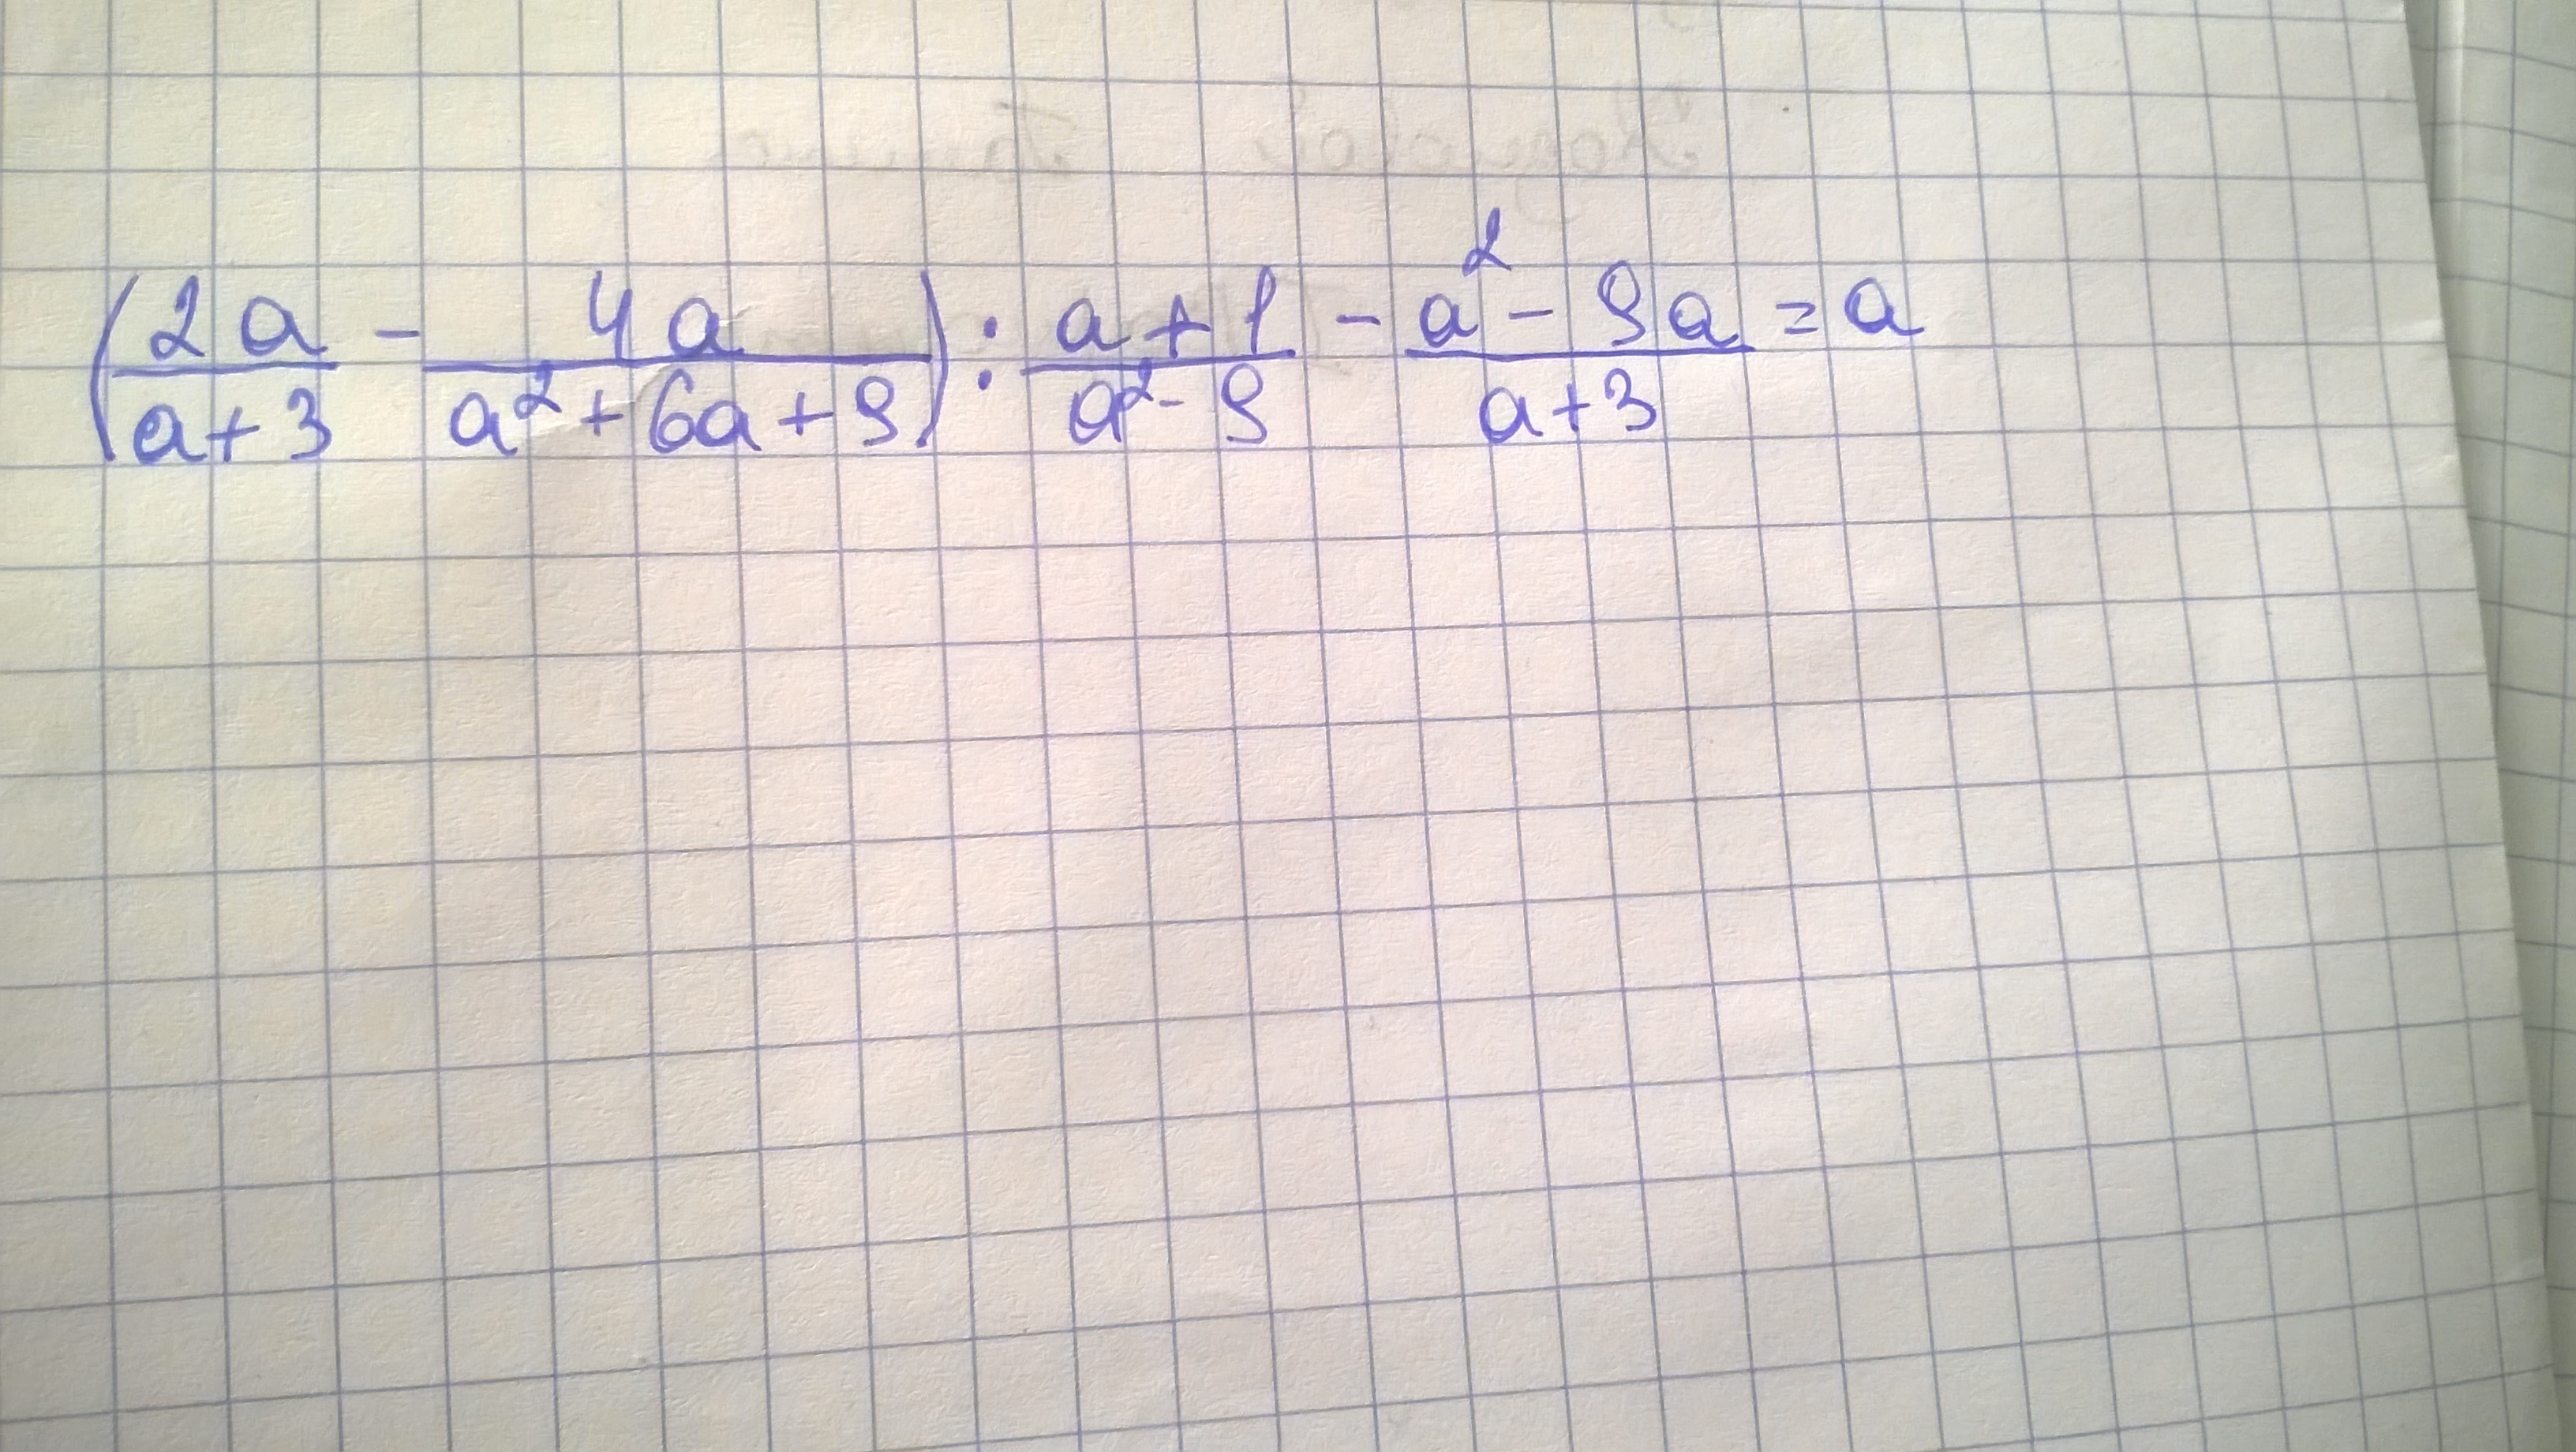 (2a/(a+3) - 4a/(a²+6a+9)) : (a+1)/(a²-9) - (a²-9a)/(a+3) = a